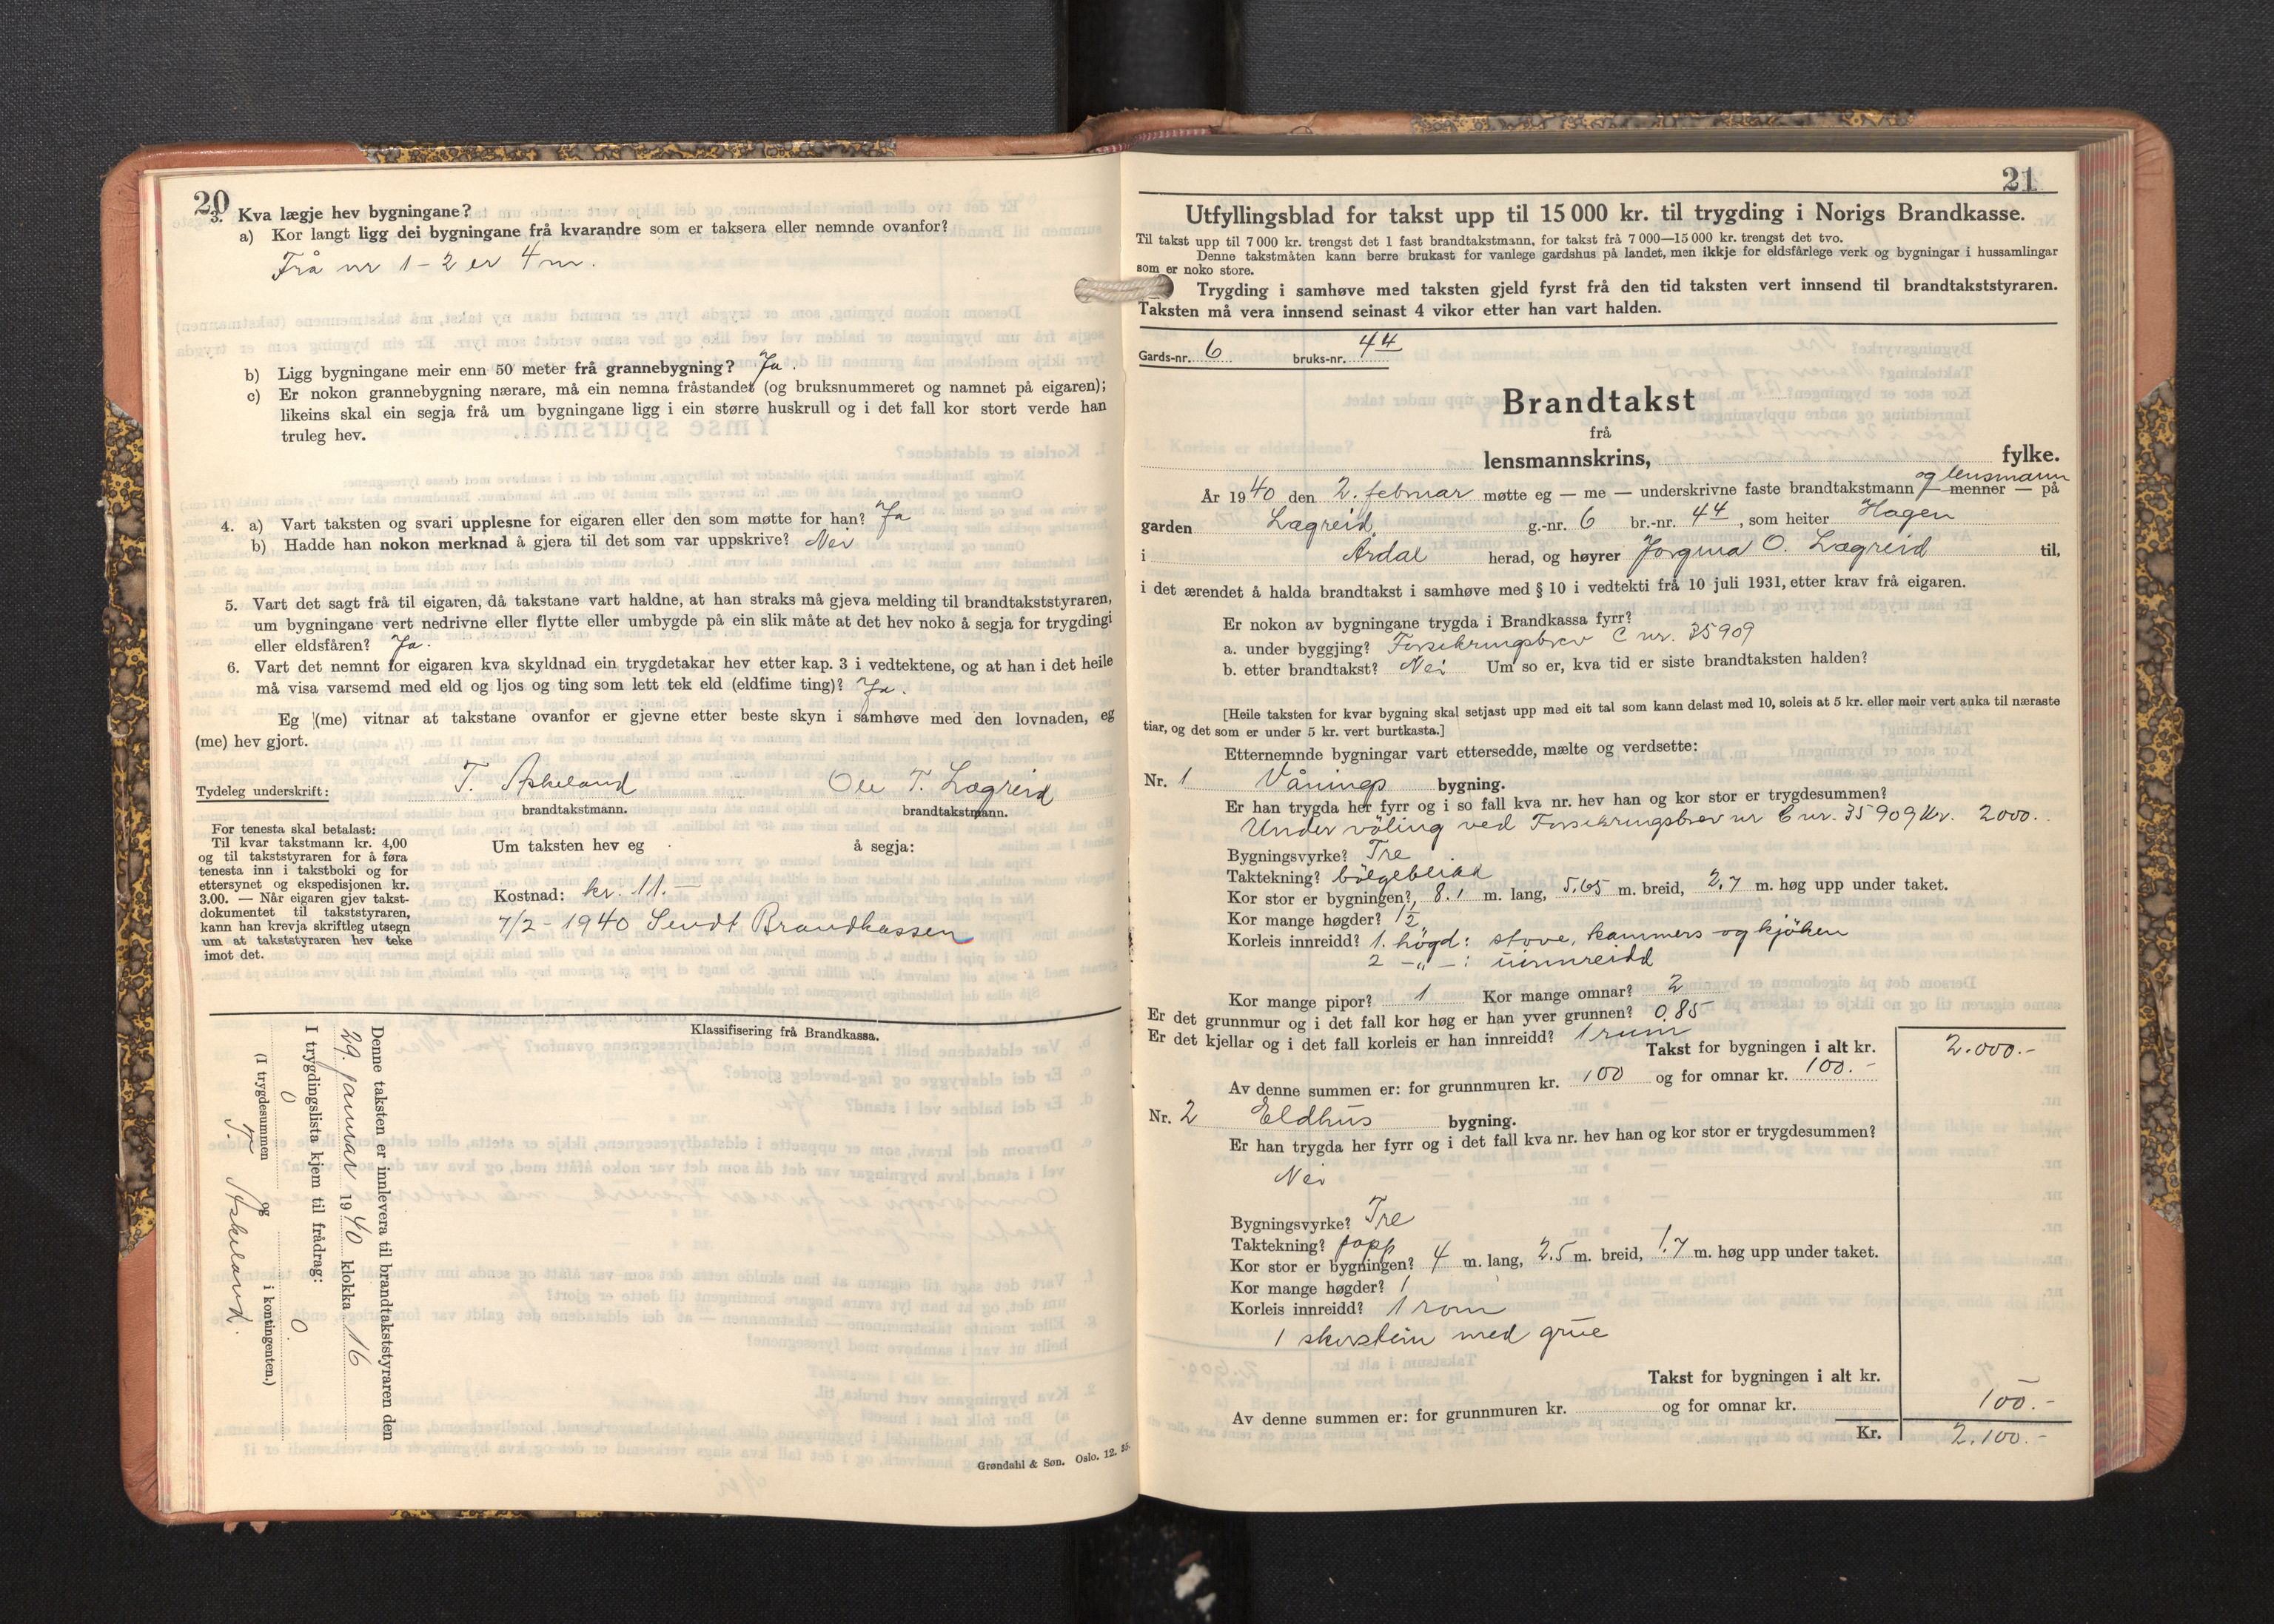 20
3. Kva lægje hev bygningane?
a) Kor langt ligg dei bygningane frå kvarandre som er taksera eller nemnde ovanfor?
Frå nr 1 - 2 er 4 m.
b) Ligg bygningane meir enn 50 meter frå grannebygning? Ja.
c) Er nokon grannebygning nærare, må ein nemna fråstandet (og bruksnummeret og namnet på eigaren);
likeins skal ein segja frå um bygningane ligg i ein større huskrull og i det fall kor stort verde han
truleg hev.
4. a) Vart taksten og svari upplesne for eigaren eller den som møtte for han? Ja
b) Hadde han nokon merknad å gjera til det som var uppskrive? Nei
5. Vart det sagt frå til eigaren, då takstane vart haldne, at han straks må gjeva melding til brandtakststyraren,
um bygningane vert nedrivne eller flytte eller umbygde på ein slik måte at det hev noko å segja for trygdingi
eller eldsfåren? Ja.
6. Vart det nemnt for eigaren kva skyldnad ein trygdetakar hev etter kap. 3 i vedtektene, og at han i det heile
må visa varsemd med eld og ljos og ting som lett tek eld (eldfime ting)? Ja.
Eg (me) vitnar at takstane ovanfor er gjevne etter beste skyn i samhøve med den lovnaden, eg
(me) hev gjort.
Tydeleg underskrift: T. Askeland Ole T. Lægreid
brandtakstmann. brandtakstmann.
For tenesta skal betalast:
Til kvar takstmann kr. 4,00
og til takststyraren for å føra
tenesta inn i takstboki og for
ettersynet og ekspedisjonen kr.
3.00. — Når eigaren gjev takst-
dokumentet til takststyraren,
kann han krevja skriftleg utsegn
um at takststyraren hev teke
imot det.
Um taksten hev eg å segja:
Kostnad: kr. 11.—
7/2 - 1940 Sendt Brandkassen
Klassifisering frå Brandkassa.
Denne taksten er innlevera til brandtakststyraren den
29. januar 1940 klokka 16
I trygdingslista kjem til frådrag:
0 0
(I trygdesummen og i kontingenten.)
T. Askeland.
Grøndahl & Søn. Oslo. 12. 35.
21
Utfyllingsblad for takst upp til 15 000 kr. til trygding i Norigs Brandkasse.
Til takst upp til 7 000 kr. trengst det 1 fast brandtakstmann, for takst frå 7 000—15 000 kr. trengst det tvo.
Denne takstmåten kann berre brukast for vanlege gardshus på landet, men ikkje for eldsfårlege verk og bygningar i hussamlingar
som er noko store.
Trygding i samhøve med taksten gjeld fyrst frå den tid taksten vert innsend til brandtakststyraren.
Taksten må vera innsend seinast 4 vikor etter han vart halden.
Gards-nr. 6 bruks-nr. 44
Brandtakst
frå
lensmannskrins, fylke.
og lensmann
År 1940 den 2. februar møtte eg — me — underskrivne faste brandtakstmann — menner — på
garden Lægreid g.-nr. 6 br.-nr. 44, som heiter Hagen
i Ardal herad, og høyrer Jorgina O. Lægreid til,
i det ærendet å halda brandtakst i samhøve med § 10 i vedtekti frå 10 juli 1931, etter krav frå eigaren.
Er nokon av bygningane trygda i Brandkassa fyrr?
a. under byggjing? Forsikringsbrev C nr. 35909
b. etter brandtakst? Nei Um so er, kva tid er siste brandtaksten halden?
[Heile taksten for kvar bygning skal setjast upp med eit tal som kann delast med 10, soleis at 5 kr. eller meir vert auka til næraste
tiar, og det som er under 5 kr. vert burtkasta.]
Etternemnde bygningar vart ettersedde, mælte og verdsette:
Nr. 1 Vånings bygning.
Er han trygda her fyrr og i so fall kva nr. hev han og kor stor er trygdesummen?
Under völing ved Forsikringsbrev nr C nr. 35909 Kr. 2000.
Bygningsvyrke? Tre
Taktekning? bölgeblikk
Kor stor er bygningen? 8.1 m. lang, 5,65 m. breid, 2,7 m. høg upp under taket.
Kor mange høgder? 1½
Korleis innreidd? 1. högd: stove, kammers og kjöken
2 -„-: uinnreidd
Kor mange pipor? 1 Kor mange omnar? 2
Er det grunnmur og i det fall kor høg er han yver grunnen? 0,85
Er det kjellar og i det fall korleis er han innreidd? 1 rum
Takst for bygningen i alt kr. 2.000.-
Av denne summen er: for grunnmuren kr. 100 og for omnar kr. 100.-
Nr. 2 Eldhus bygning.
Er han trygda her fyrr og i det fall kva nr. hev han og kor stor er trygdesummen?
Nei
Bygningsvyrke? Tre
Taktekning? papp
Kor stor er bygningen? 4 m. lang, 2.5 m. breid, 1.7 m. høg upp under taket.
Kor mange høgder? 1
Korleis innreidd? 1 rom
1 skorstein med grue
Takst for bygningen i alt kr. 100.-
Av denne summen er: for grunnmuren kr. og for omnar kr.
Kr. 2.100.-